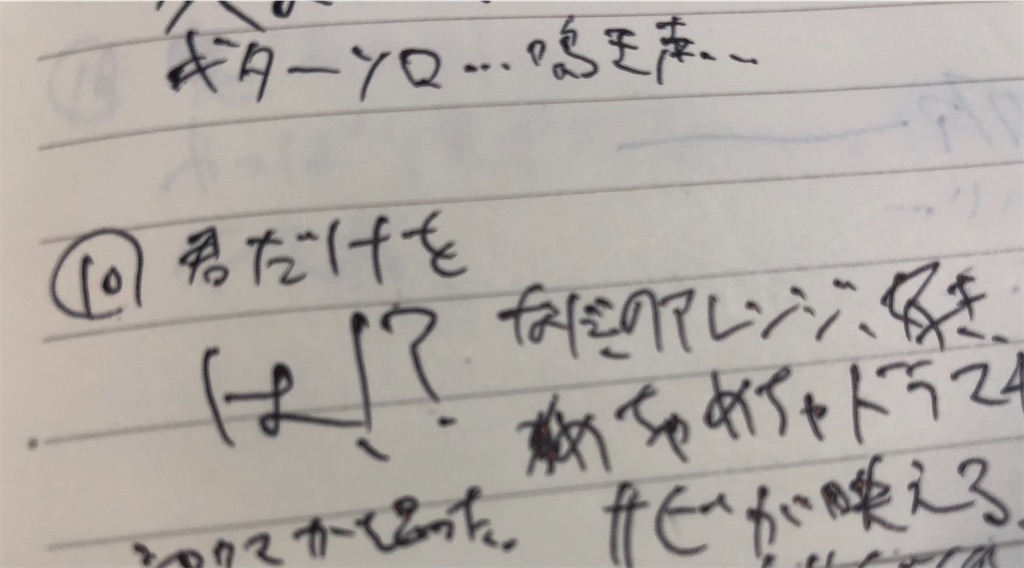 ギターソロ…鳴き声…
⑩ 君だけを
は!? なにこのアレンジ、好き、
めちゃめちゃドラマチ
かと思った。 サビが映える